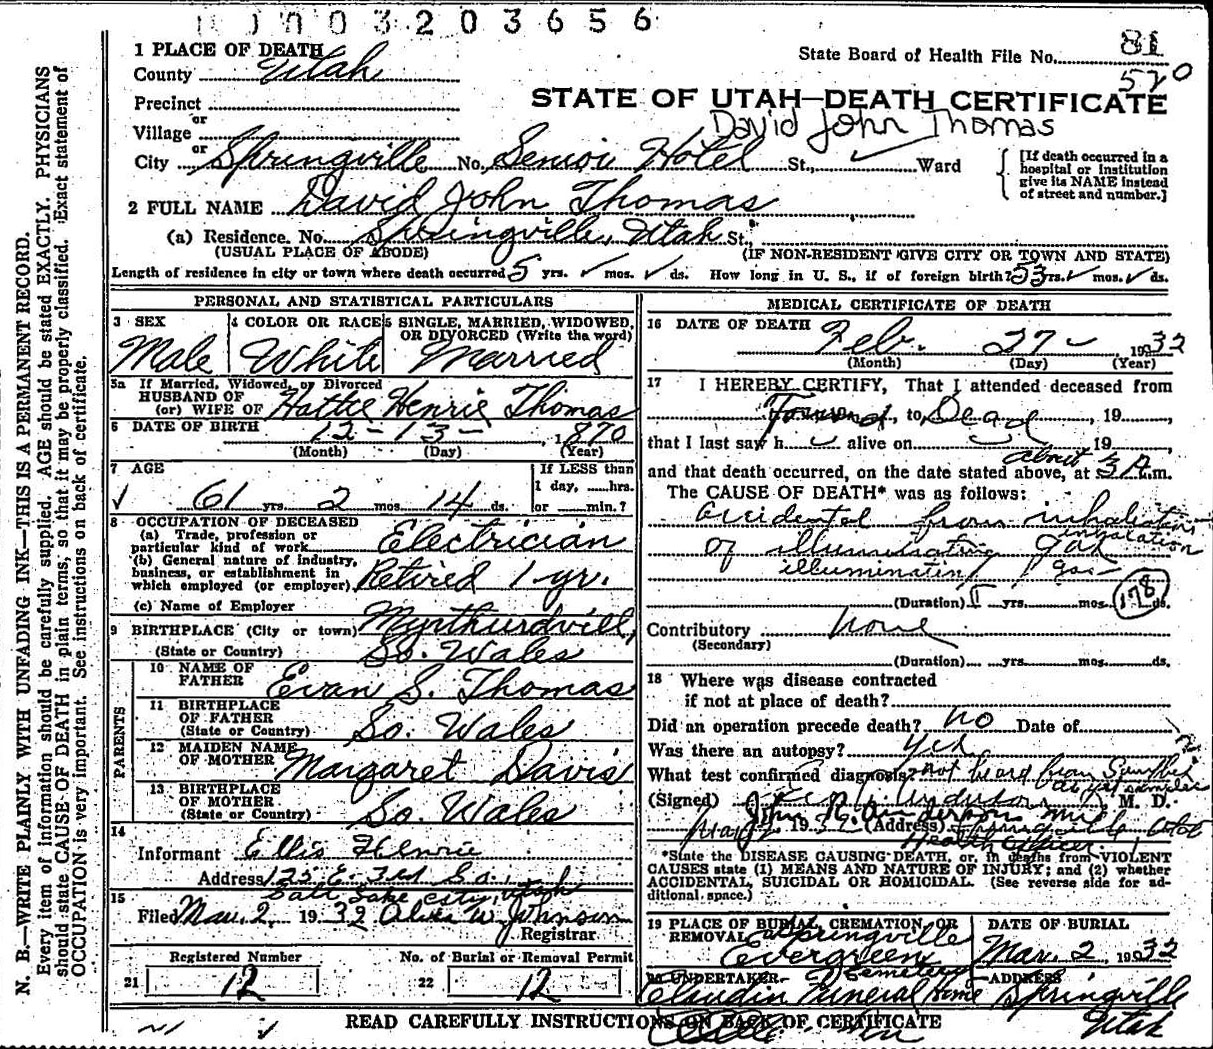 0003203656
1 PLACE OF DEATH
County Utah
State Board of Health File No. 81
520
Precinct
or
Village
STATE OF UTAH—DEATH CERTIFICATE
David John Thomas
or
City Springville No. Senior Hotel St., Ward
[If death occurred in a hospital or institution give its NAME instead of street and number.]
2 FULL NAME David John Thomas
(a) Residence. No. Springville, Utah St.,
(USUAL PLACE OF ABODE) (IF NON-RESIDENT GIVE CITY OR TOWN AND STATE)
Length of residence in city or town where death occurred 5 yrs. mos. ds. How long in U. S., if of foreign birth? 53 yrs. mos. ds.
PERSONAL AND STATISTICAL PARTICULARS
3 SEX
Male
4 COLOR OR RACE
White
5 SINGLE, MARRIED, WIDOWED, OR DIVORCED (Write the word)
Married
5a If Married, Widowed, or Divorced
HUSBAND OF
(or) WIFE OF Hattie Henrie Thomas
6 DATE OF BIRTH 12-13-, 1870
(Month) (Day) (Year)
7 AGE
61 yrs. 2 mos. 14 ds.
If LESS than
1 day, hrs.
or min.?
8 OCCUPATION OF DECEASED
(a) Trade, profession or
particular kind of work Electrician
(b) General nature of industry,
business, or establishment in
which employed (or employer) Retired 1 yr.
(c) Name of Employer
9 BIRTHPLACE (City or town)
(State or Country) So. Wales
PARENTS
10 NAME OF
FATHER Evan S. Thomas
11 BIRTHPLACE
OF FATHER
(State or Country) So. Wales
12 MAIDEN NAME
OF MOTHER Margaret Davis
13 BIRTHPLACE
OF MOTHER
(State or Country) So. Wales
14
Informant Ellis Henrie
Address 125 E. 3rd So.,
Salt Lake City, Utah
15
Filed Mar. 2 1932 W. Johnson
Registrar
Registered Number
21 12
No. of Burial or Removal Permit
22 12
MEDICAL CERTIFICATE OF DEATH
16 DATE OF DEATH Feb. 27- 1932
(Month) (Day) (Year)
17 I HEREBY CERTIFY, That I attended deceased from
Found, to Dead, 19
that I last saw h alive on 19
and that death occurred, on the date stated above, at about 3 A.m.
The CAUSE OF DEATH* was as follows:
accidental from inhalation
inhalation
of illuminating gas
illuminating gas
(Duration) yrs. mos. 178 ds.
Contributory none
(Secondary)
(Duration) yrs. mos. ds.
18 Where was disease contracted
if not at place of death?
Did an operation precede death? no Date of
Was there an autopsy? yes
What test confirmed diagnosis? not heard from
as yet
(Signed) Anderson, M. D.
John Anderson MD
Mar 2 1932 (Address) Springville Utah
Health Officer
*State the DISEASE CAUSING DEATH, or, in deaths from VIOLENT
CAUSES state (1) MEANS AND NATURE OF INJURY; and (2) whether
ACCIDENTAL, SUICIDAL OR HOMICIDAL. (See reverse side for additional space.)
19 PLACE OF BURIAL, CREMATION, OR
REMOVAL Springville
Evergreen
Cemetery
DATE OF BURIAL
Mar. 2 1932
20 UNDERTAKER
Claudin Funeral Home
ADDRESS
Springville
Utah
READ CAREFULLY INSTRUCTIONS ON BACK OF CERTIFICATE
N. B.—WRITE PLAINLY WITH UNFADING INK—THIS IS A PERMANENT RECORD.
Every item of information should be carefully supplied. AGE should be stated EXACTLY. PHYSICIANS
should state CAUSE OF DEATH in plain terms, so that it may be properly classified. Exact statement of
OCCUPATION is very important. See instructions on back of certificate.